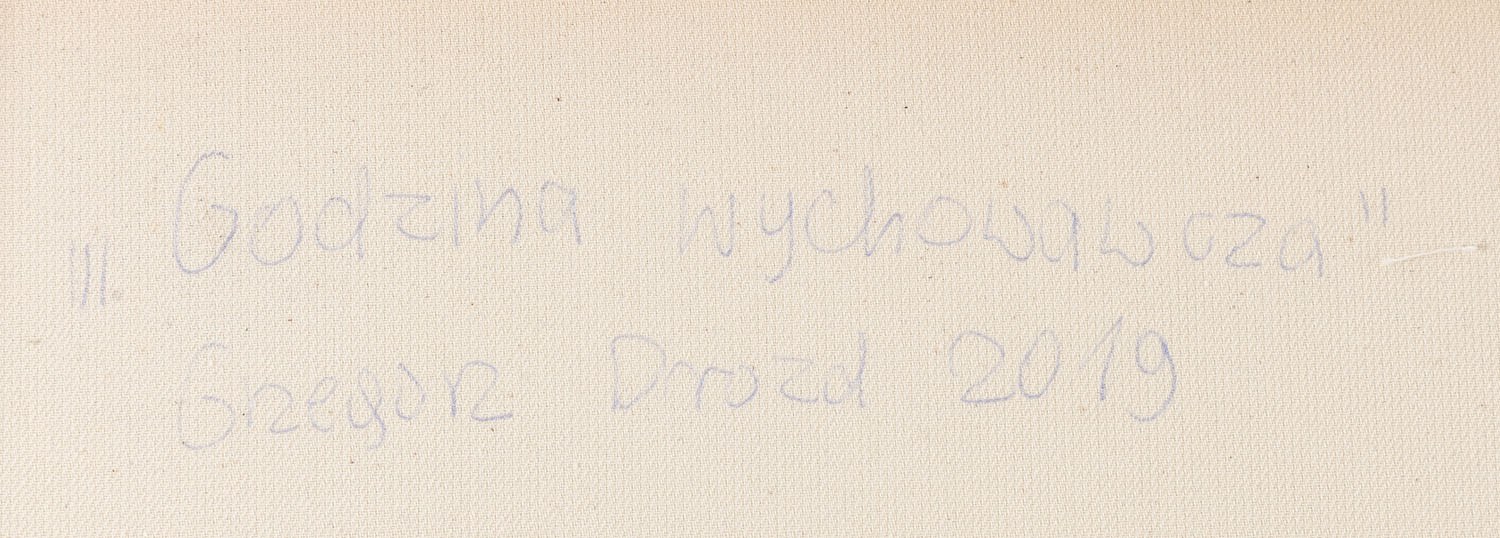 „Godzina wychowawcza"
Grzegorz Drozd 2019